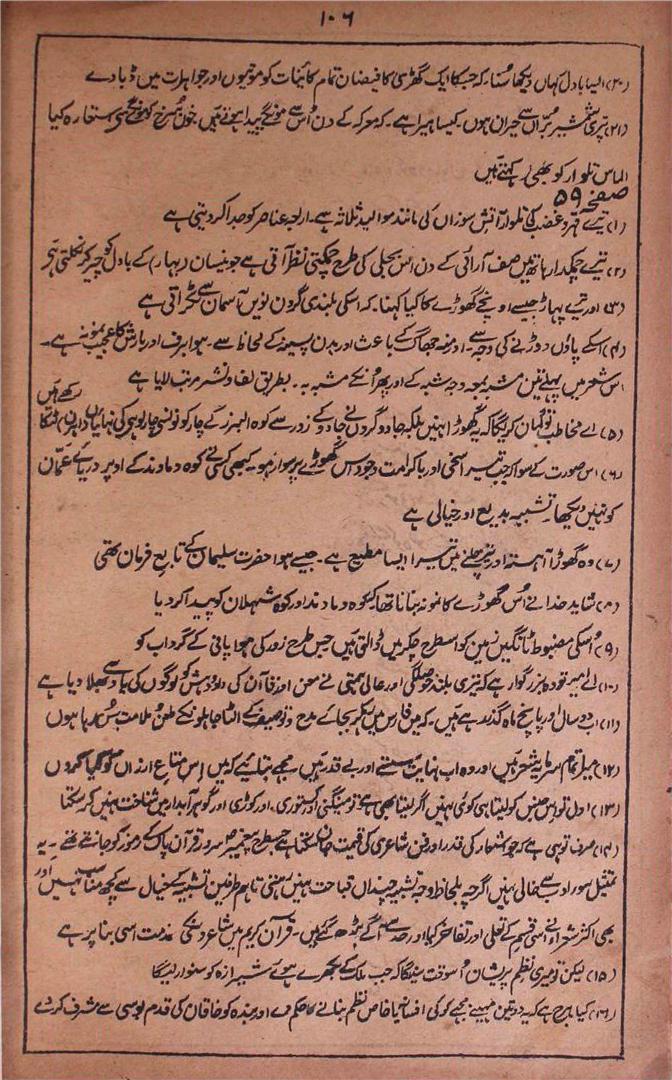 ۱۰۶
(۲۰) ایسا بادل کہاں دیکھا سُنا۔ کہ جس کا ایک گھڑی کا فیضان تمام کائنات کو موتیوں اور جواہرات میں ڈبا دے
(۲۱) تیری شمشیر بُرّاں سے حیران ہوں۔ کیسا ہیرا ہے۔ کہ معرکہ کے دن اُس سے مونگے پیدا ہوتے ہیں۔ خون سُرخ کو مونگے سے استعارہ کیا
الماس تلوار کو بھی کہتے ہیں
صفحہ ۵۹
(۱) تیرے قہر و غضب کی تلوار آتش سوزاں کی مانند موالید ثلاثہ سے۔ اربعہ عناصر کو جدا کر دیتی ہے
(۲) تیرے چمکدار ہاتھ میں صف آرائی کے دن اس بجلی کی طرح چمکتی نظر آتی ہے جو نیسان (بہار) کے بادل کو چیر کر نکلتی ہے
(۳) اور تیرے پہاڑ جیسے اونچے گھوڑے کا کیا کہنا۔ کہ اسکی بلندی گردن نویں آسمان سے ٹکراتی ہے
(۴) اسکے پاؤں دوڑنے کی وجہ سے۔ اور منہ جھاگ کے باعث اور بدن پسینہ کے لحاظ سے۔ ہوا برف اور بارش کا عجیب نمونہ ہے۔
اس شعر میں پہلے تین مشبہ بمعہ وجہ شبہ کے اور پھر اُنکے مشبہ بہ۔ بطریق لف و نشر مرتب لایا ہے
(۵) اے مخاطب تو گمان کریگا کہ یہ گھوڑا نہیں بلکہ جادوگروں نے جادو کے زور سے کوہ البرز کے چار کونوں پر چار لوہے کی
(۶) اس صورت کے سوا کہ جب تیرے سخی اور باکرامت وجود اس گھوڑے پر سوار ہو۔ کبھی کسی نے کوہ دماوند کے اوپر دریائے عمّان
کو نہیں دیکھا۔ تشبیہ بدیع اور خیالی ہے
(۷) وہ گھوڑا آہستہ اور تیز چلنے میں تیرا ایسا مطیع ہے۔ جیسے ہوا حضرت سلیمان کے تابع فرمان تھی
(۸) شاید خدا نے اُس گھوڑے کا نمونہ بنانا تھا کہ کوہ دماوند اور کوہ شہلان کو پیدا کر دیا
(۹) اسکی مضبوط ٹانگیں زمین کو اسطرح چکر میں ڈالتی ہیں جس طرح زور کی ہوا پانی کے گرداب کو
(۱۰) اے امیر تو وہ بزرگوار ہے کہ تیری بلند حوصلگی اور عالی ہمتی نے معن اور قاآن کی داد و دہش کو لوگوں کی یاد سے بھلا دیا ہے
(۱۱) اب دو سال اور پانچ ماہ گذرے ہیں۔ کہ میں فارس میں ہوں لیکن بجائے مدح و توصیف کے الٹا جاہلوں کے طعن و ملامت سُن رہا ہوں
(۱۲) میرا تمام سرمایہ شعر ہیں اور وہ اب نہایت سستے اور بے قدر ہیں۔ مجھے بتائیے کہ میں اس متاع ارزاں کو کیا کروں
(۱۳) اول تو اس جنس کو لیتا ہی کوئی نہیں اگر لیتا بھی ہے تو مینگنی اور کستوری۔ اور کوڑی اور گوہر آبدار میں شناخت نہیں کر سکتا
(۱۴) صرف تو ہی ہے کہ جو اشعار کی قدر اور فن شاعری کی قیمت جان سکتا ہے جسطرح پیغمبر سرور قرآن پاک کے رموز کو جانتے تھے۔ یہ
تمثیل سوء ادب سے خالی نہیں اگرچہ بلحاظ وجہ تشبیہ چنداں قباحت نہیں رکھتی تاہم طرفین تشبیہ کے خیال سے کچھ مناسب نہیں اور
بھی اکثر شعراء نے اسی قسم کے تعلی اور تفاخر کیا اور حد سے آگے بڑھ گئے ہیں۔ قرآن کریم میں شاعروں کی مذمت اسی بنا پر ہے
(۱۵) لیکن تو میری نظم پریشان اُسوقت سنیگا کہ جب ملک کے بکھرے ہوئے شیرازہ کو سنوار لیگا
(۱۶) کیا ہرج ہے کہ یہ دو تین مہینے مجھے کوئی افسانہ یا خاص نظم بنانے کا حکم دے اور بندہ کو خاقان کی قدم بوسی سے مشرف کر دے